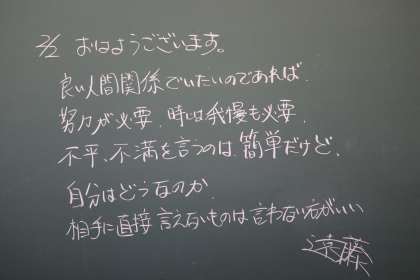 2/2 おはようございます。
良い人間関係でいたいのであれば、
努力が必要、時には我慢も必要、
不平、不満を言うのは、簡単だけど、
自分はどうなのか
相手に直接 言えないものは 言わない方がいい
遠藤